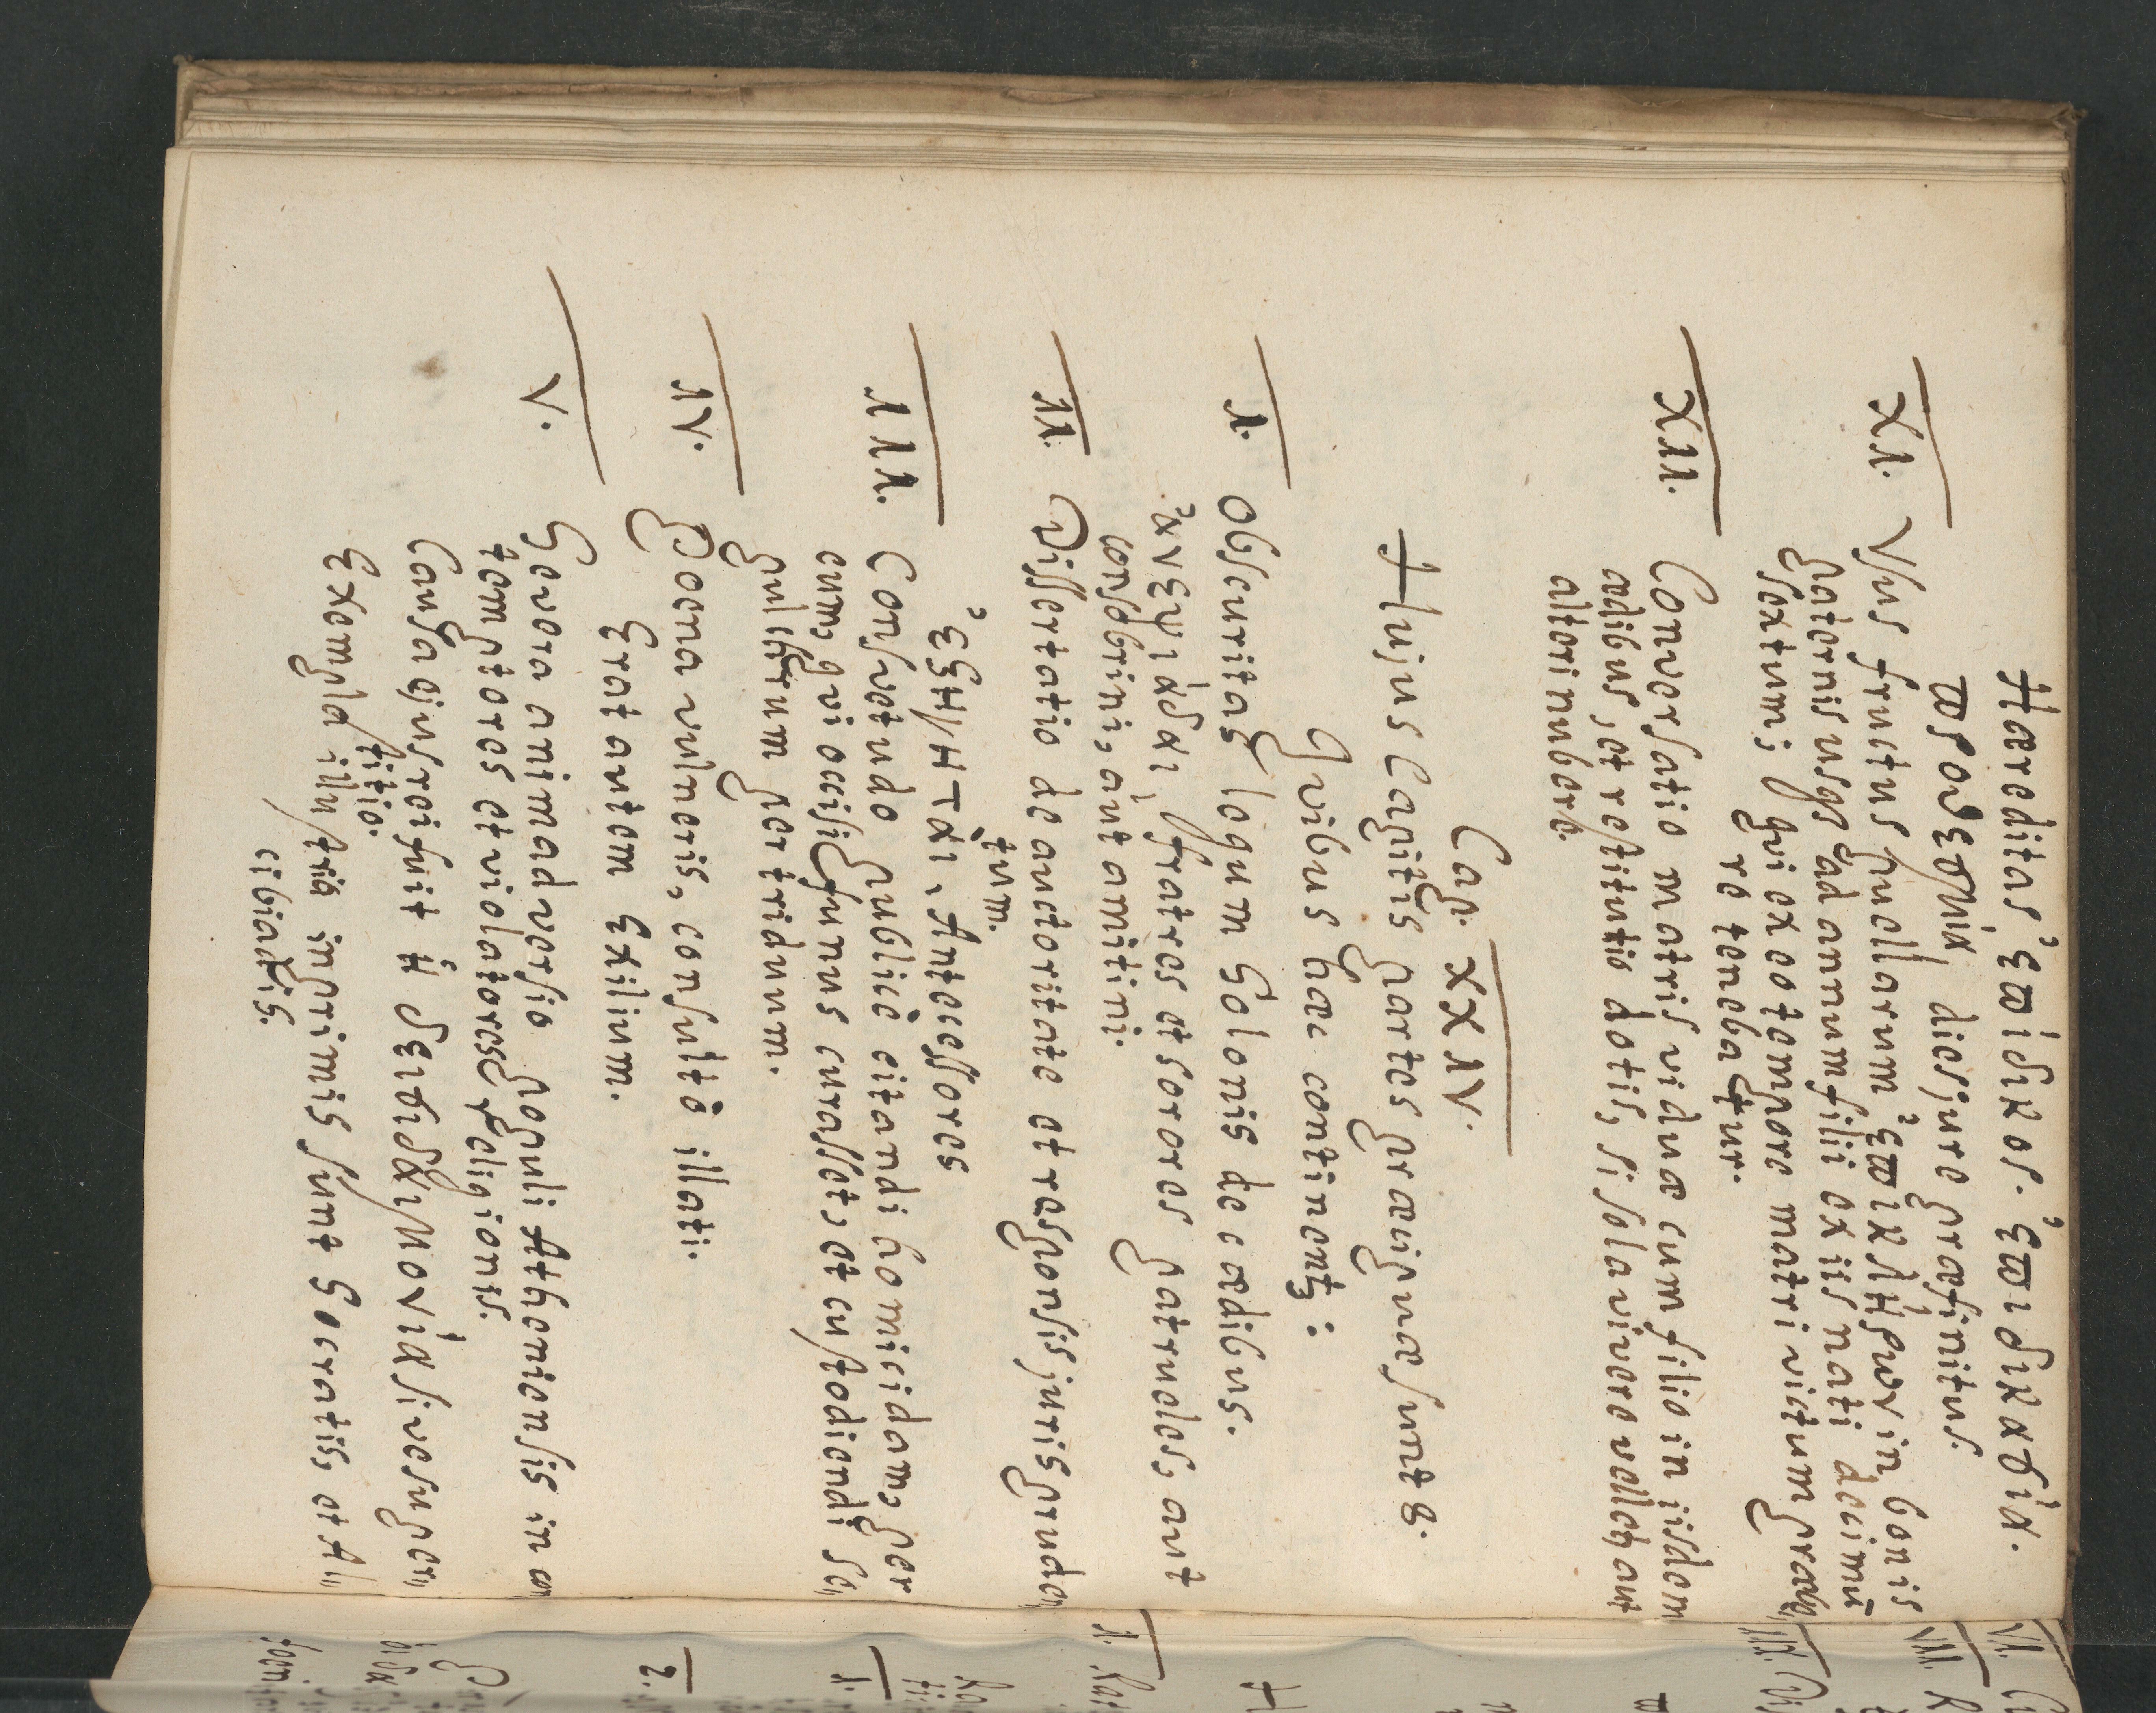 Haereditas ἐπίδικος. ἐπιδικασία.
προθεσμία dies jure praefinitus.
XI. Usus fructus puellarum ἐπικλήρων in bonis
paternis usq; ad annum filii ex iis nati decimū
sextum; qui ex eo tempore matri victum praebe=
re tenebatur.
XII. Conversatio matris viduae cum filio in iisdem
aedibus, et restitutio dotis, si sola vivere vellet, aut
alteri nubere.
Cap. XXIV.
Hujus Capitis partes praecipuae sunt 8.
Quibus haec continentꝫ:
I. Obscuritas legum Solonis de caedibus.
fratres et sorores patrueles, aut
consobrini, aut amitini.
II. Dissertatio de auctoritate et responsis jurispruden=
tum.
ἐξηγηταὶ, Antecessores
III. Consuetudo publicè citandi homicidam, per
eum, qui occisi funus curasset, et custodiendi se=
pulchrum per triduum.
IV. Poena vulneris, consultò illati.
Erat autem Exilium.
V. Severa animadversio populi Atheniensis in con=
temptores et violatores religionis.
Causa ejus rei fuit ἡ δεισιδαιμονία, sive super=
stitio.
Exempla illustria in primis sunt Socratis, et Al=
cibiadis.